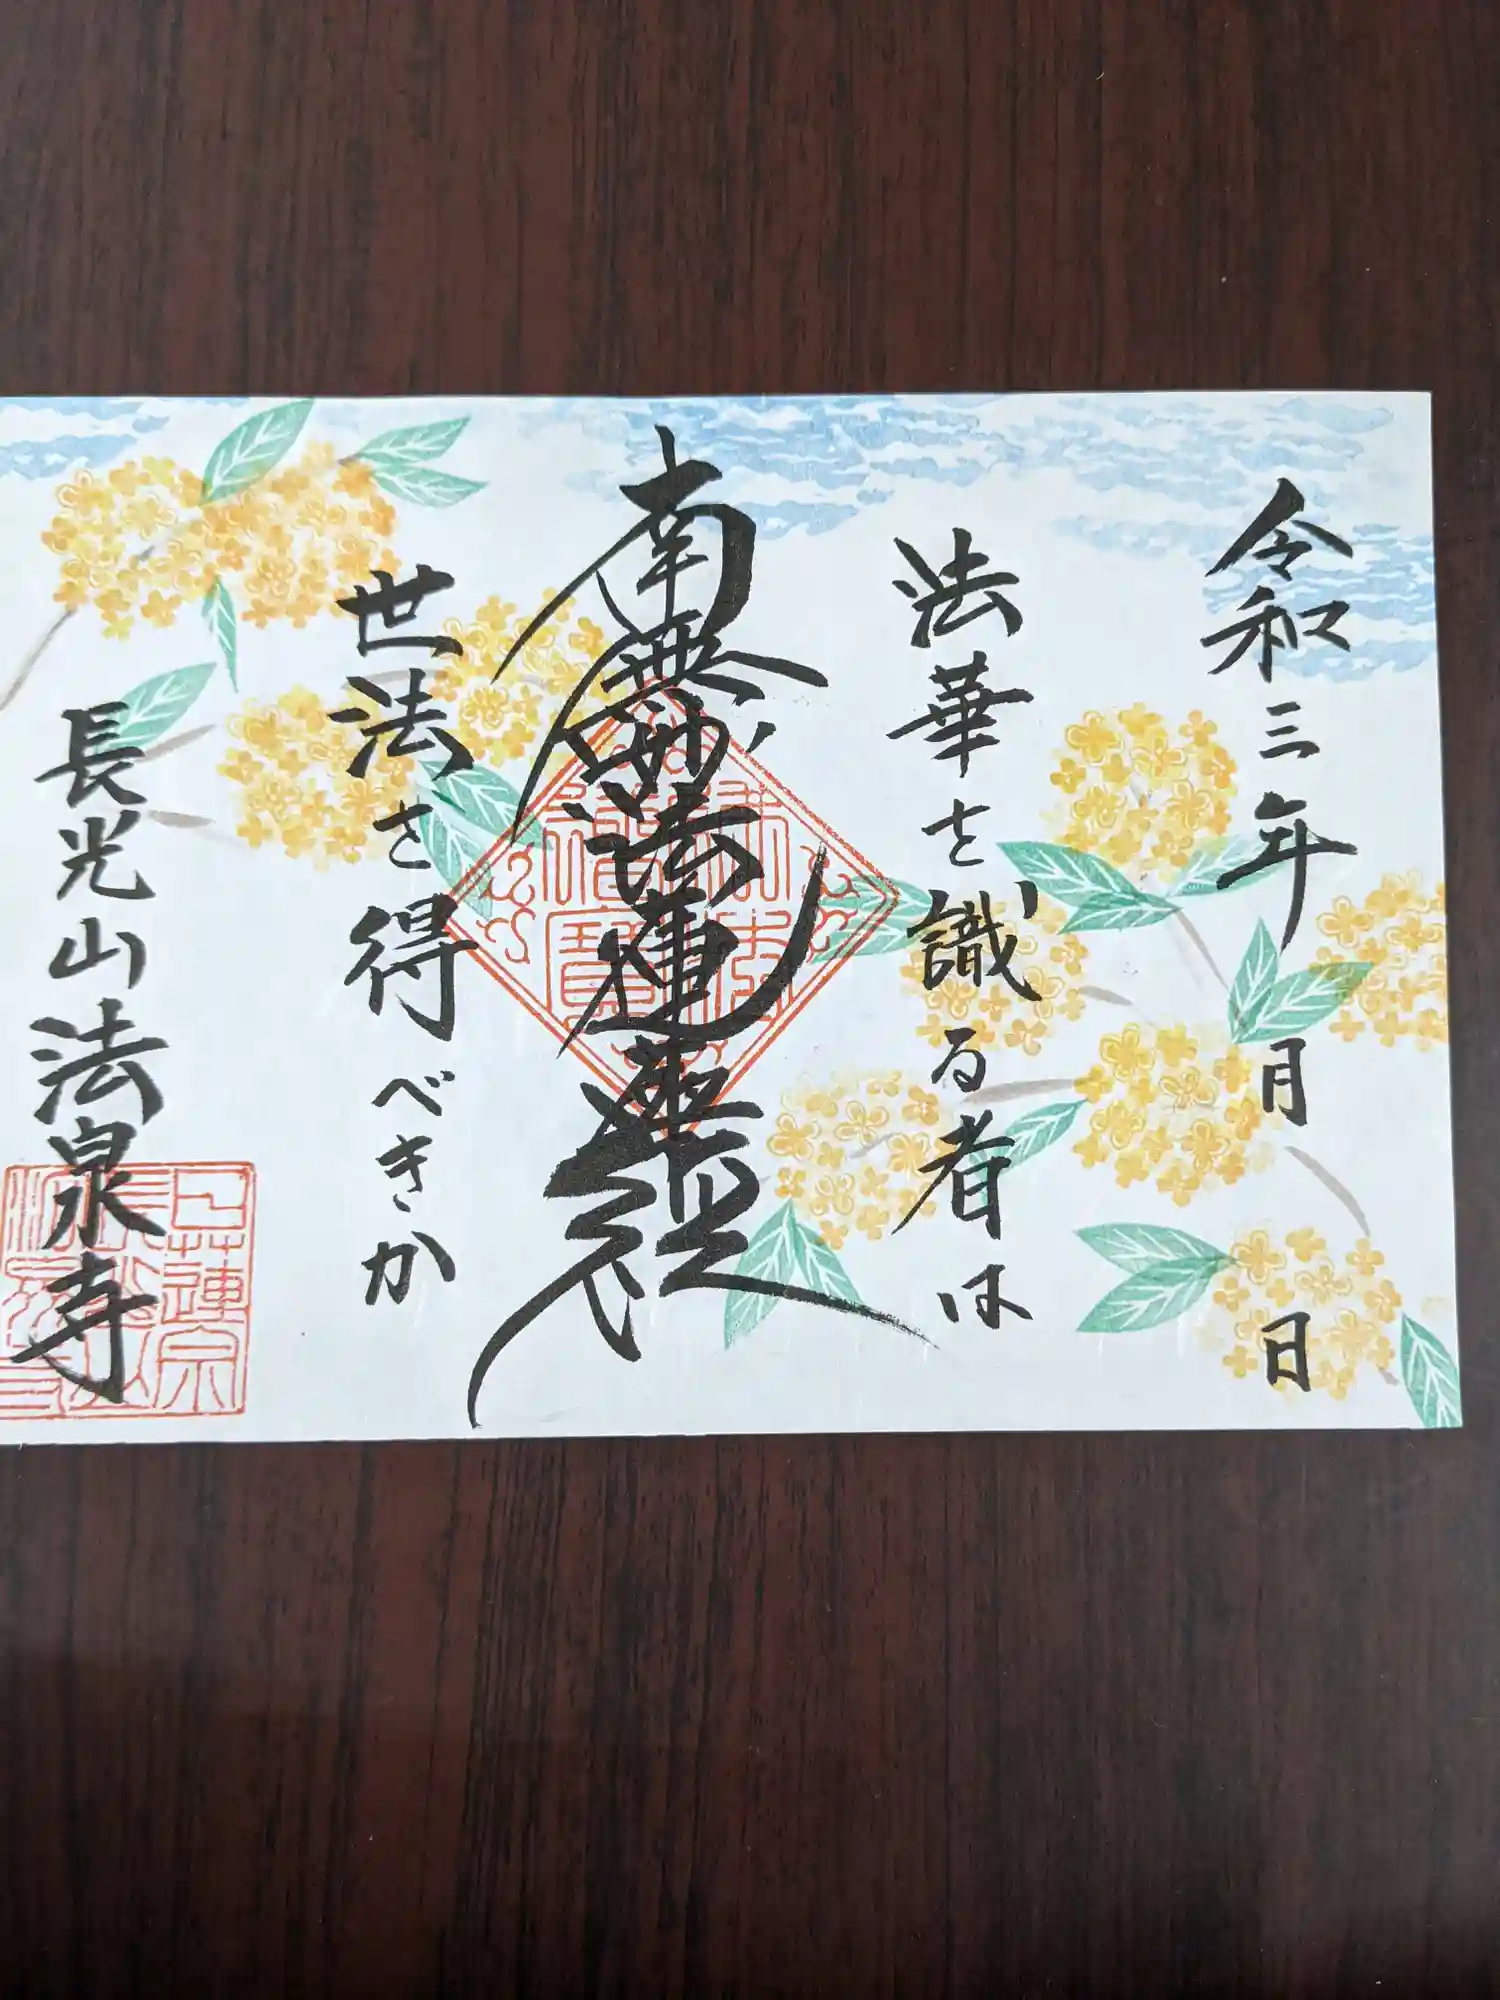 令和三年 月 日
法華を識る者は
南無妙法蓮華経
世法を得べきか
長光山法泉寺
日蓮宗